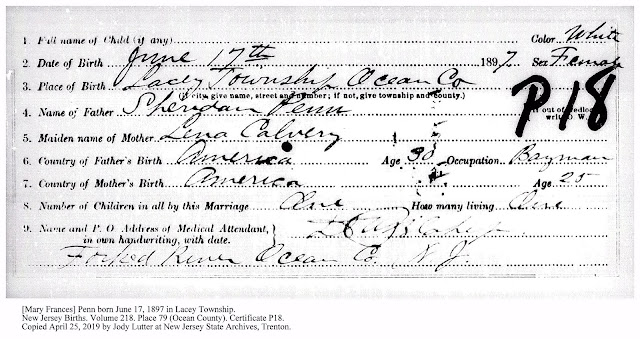 1. Full name of Child (if any) Color White
2. Date of Birth June 17th 1897. Sex Female
3. Place of Birth Lacey Township Ocean Co
(If city, give name, street and number; if not, give township and county.)
4. Name of Father Sheridan Penn If out of wedlock write O. W.
P18
5. Maiden name of Mother Lena Calvery
6. Country of Father's Birth America Age 30 Occupation Bayman
7. Country of Mother's Birth America Age 25
8. Number of Children in all by this Marriage One How many living One
9. Name and P. O. Address of Medical Attendant,
in own handwriting, with date.
Forked River Ocean Co. N. J.
[Mary Frances] Penn born June 17, 1897 in Lacey Township.
New Jersey Births. Volume 218. Place 79 (Ocean County). Certificate P18.
Copied April 25, 2019 by Jody Lutter at New Jersey State Archives, Trenton.